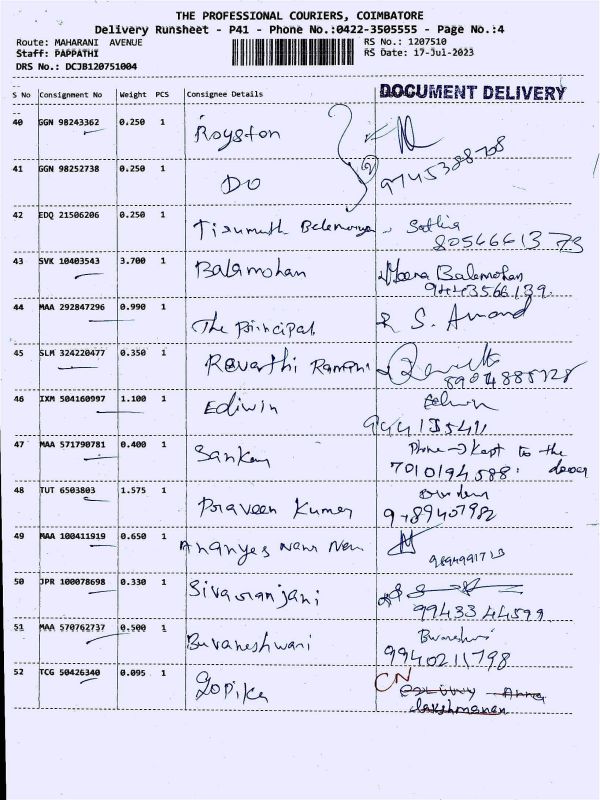 THE PROFESSIONAL COURIERS, COIMBATORE
Delivery Runsheet - P41 - Phone No.:0422-3505555 - Page No.:4
Route: MAHARANI AVENUE RS No.: 1207510
Staff: PAPPATHI RS Date: 17-Jul-2023
DRS No.: DCJB120751004
DOCUMENT DELIVERY
S No Consignment No Weight PCS Consignee Details
40 GGN 98243362 0.250 1 Royston
41 GGN 98252738 0.250 1 DO
42 EDQ 21506206 0.250 1 Sathia
8056661373
43 SVK 10403543 3.700 1 Balamohan Meera Balamohan
9443566139.
44 MAA 292847296 0.990 1 The principal S. Anand
45 SLM 324220477 0.350 1 Revathi
8904885728
46 IXM 504160997 1.100 1 Ediwin Edwin
944135411
47 MAA 571790781 0.400 1 Sankar Phone → Kept to the
7010194588. door
48 TUT 6503803 1.575 1 Praveen Kumar
9789407982
49 MAA 100411919 0.650 1
9894991713
50 JPR 100078698 0.330 1 Sivaranjani
9943344599
51 MAA 570762737 0.500 1 Buvaneshwari
9940211798
52 TCG 50426340 0.095 1 Gopika CN
Anna
Lakshmanan